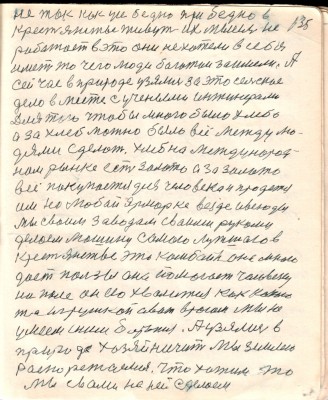 не так как уж бедно при бедно в 135
крестьянстве живут их мысля не
работает в это они не хотели в себя
имет то чего люди богатии заимели. А
сейчас в природе узялися за это сельское
дело в месте с учеными инжинерами
для того чтобы много было хлеба
а за хлеб можно было всё между лю-
дями сделат. хлеб на международ-
ном рынке есть золото а за золото
всё покупается для человека и продается
им на любой ярмарке везде и всюду
мы своим заводам своими руками
делаем машину самого лутшаго в
крестьянстве это комбайн он много
дает ползы она помогает человеку
на поле он ею хвалится как
та игрушкой а вот время мы не
умеем с ним быть. А узялися в
природе хозяйничит мы землею
распоряжаемся, что хотим то
мы с вами на ней сделаем